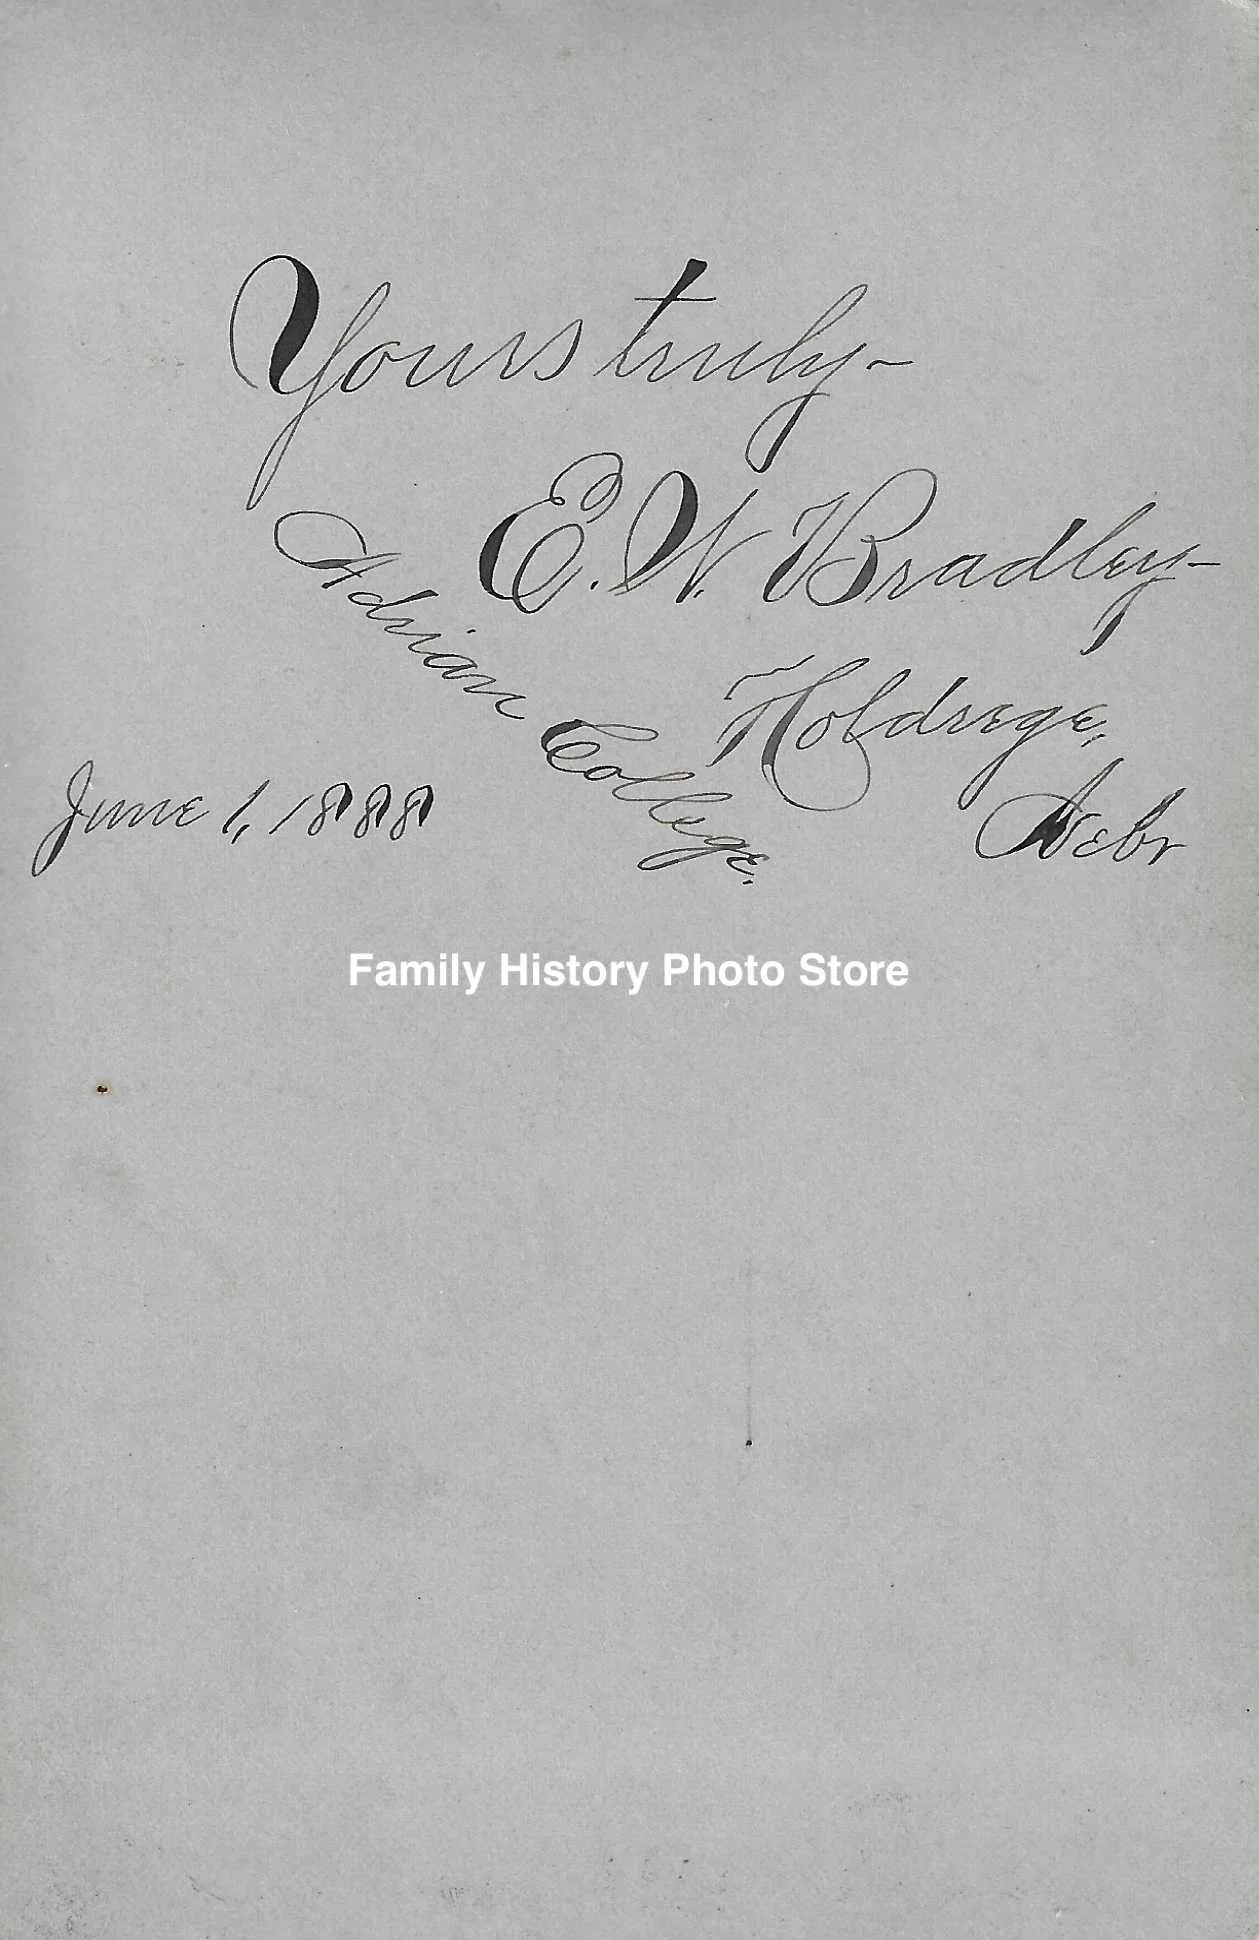 Yours truly-
E. W. Bradley-
Adrian College.
Holdrege,
Nebr
June 1, 1888
Family History Photo Store